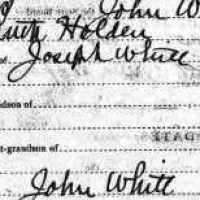 John W
Ruth Holden
of Joseph Whitt
dson of
t-grandson of
John Whitt